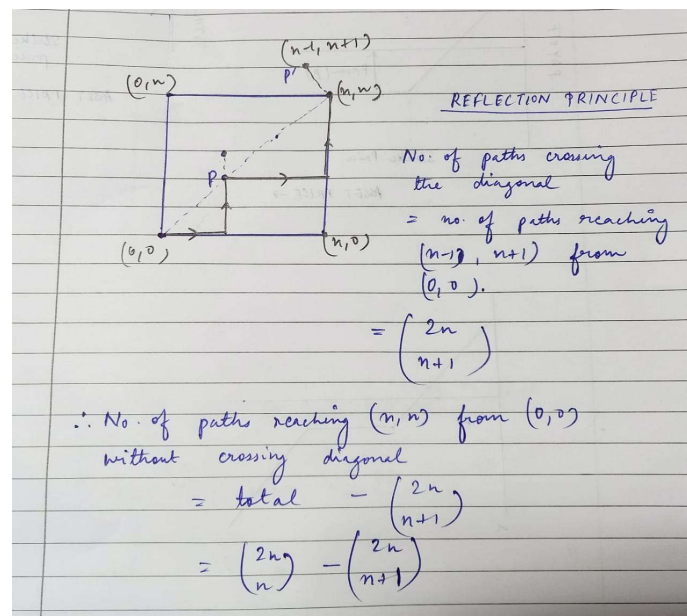 (n-1, n+1)
P'
(0,n)
(n,n)
REFLECTION PRINCIPLE
P
(0,0)
(n,0)
No. of paths crossing
the diagonal
= no. of paths reaching
(n-1, n+1) from
(0,0).
= (2n
n+1)
∴ No. of paths reaching (n,n) from (0,0)
without crossing diagonal
= total - (2n
n+1)
= (2n
n) - (2n
n+1)